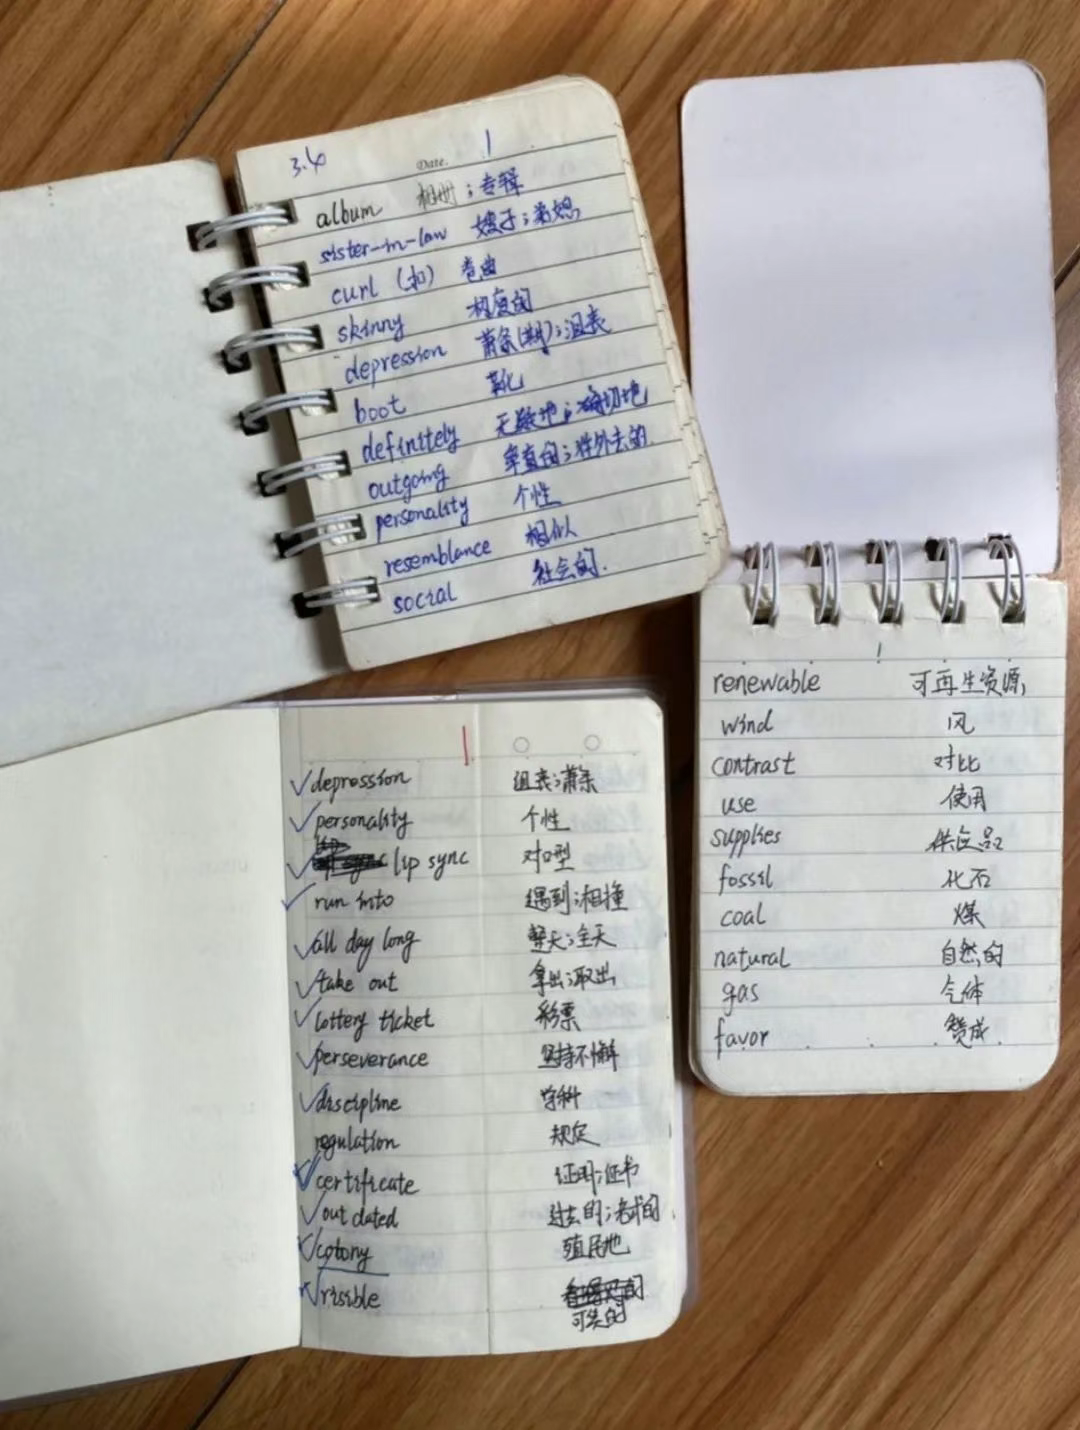 3.4 Date. 1
album 相册；专辑
sister-in-law 嫂子；弟媳
curl (扣) 卷曲
skinny 极瘦的
depression 萧条(期)；沮丧
boot 靴
definitely 无疑地；确切地
outgoing 率直的；性外去的
personality 个性
resemblance 相似
social 社会的.
1
renewable 可再生资源,
wind 风
contrast 对比
use 使用
supplies 供应品
fossil 化石
coal 煤
natural 自然的
gas 气体
favor 赞成
1
depression 沮丧；萧条
personality 个性
lip
lip sync 对口型
run into 遇到；相撞
all day long 整天；全天
take out 拿出；取出
lottery ticket 彩票
perseverance 坚持不懈
discipline 学科
regulation 规定
certificate 证明；证书
out dated 过去的；老式的
cotony 殖民地
risible
可笑的